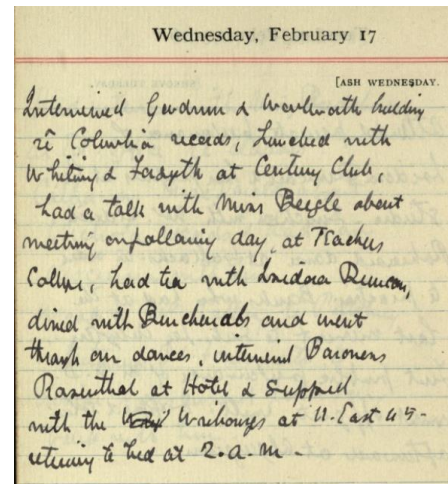 Wednesday, February 17
[ASH WEDNESDAY.
Interviewed Goodrum & Woolworth building
re Columbia records, Lunched with
Whiting & Forsyth at Century Club,
had a talk with Miss Beegle about
meeting on following day, at Teachers
College, had tea with Isidora Duncan,
dined with and went
through our dances, interviewed Baroness
Rosenthal at Hotel & supped
with the at 11. East 45-
retiring to bed at 2. a.m.-